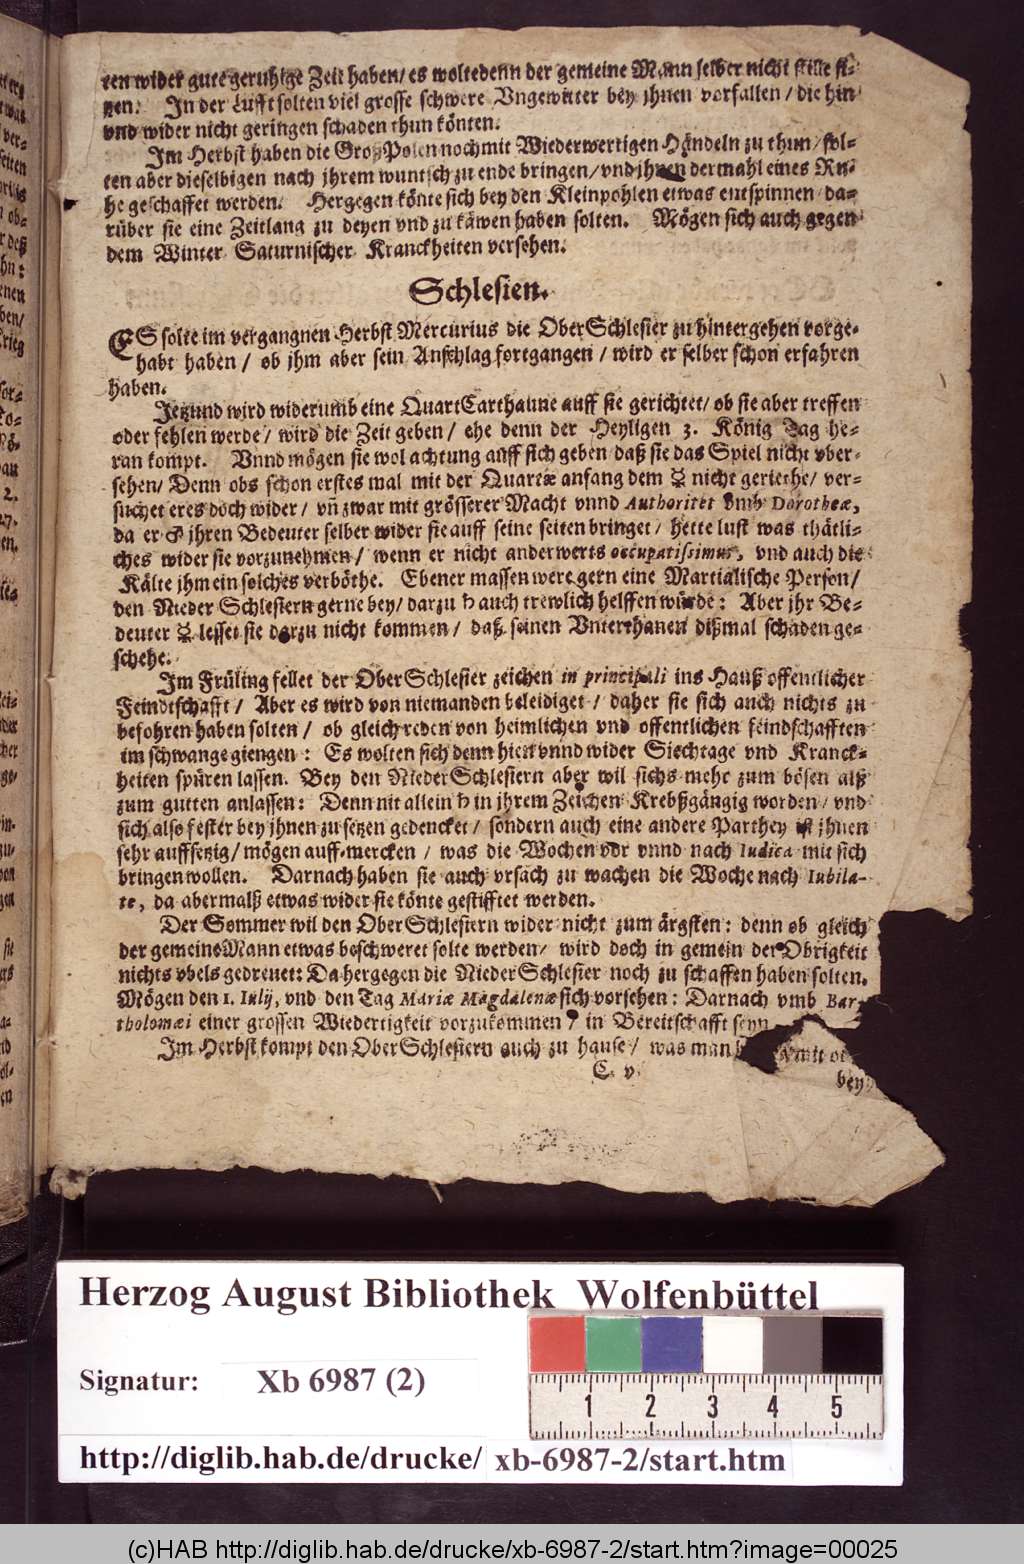 ten wider gute geruhige Zeit haben/ es wolte denn der gemeine Mann selber nicht stille si-
tzen. In der Lufft solten viel grosse schwere Vngewitter bey jhnen vorfallen / die hin
vnd wider nicht geringen schaden thun könten.
Im Herbst haben die GroßPolen noch mit Wiederwertigen Händeln zu thun/ sol-
ten aber dieselbigen nach jhrem wuntsch zu ende bringen/ vnd jhnen dermahl eines Ru-
he geschaffet werden. Hergegen könte sich bey den Kleinpohlen etwas entspinnen / da-
rüber sie eine Zeitlang zu deyen vnd zu käwen haben solten. Mögen sich auch gegen
dem Winter Saturnischer Kranckheiten versehen.
Schlesien.
ES solte im vergangnen Herbst Mercurius die OberSchlesier zu hintergehen vorge-
habt haben / ob jhm aber sein Anschlag fortgangen / wird er selber schon erfahren
haben.
Jetzund wird widerumb eine QuartCarthaune auff sie gerichtet/ ob sie aber treffen
oder fehlen werde / wird die Zeit geben / ehe denn der Heyligen 3. König Tag he-
ran kompt. Vnnd mögen sie wol achtung auff sich geben daß sie das Spiel nicht vber-
sehen/ Denn obs schon erstes mal mit der Quartæ anfang dem ☿ nicht geriethe/ ver-
suchet er es doch wider / vñ zwar mit grösserer Macht vnnd Authoritet vmb Dorotheæ,
da er ♂ jhren Bedeuter selber wider sie auff seine seiten bringet / hette lust was thätli-
ches wider sie vorzunehmen / wenn er nicht anderwerts occupatissimus, vnd auch die
Kälte jhm ein solches verböthe. Ebener massen were gern eine Martialische Person/
den Nieder Schlesiern gerne bey/ darzu ♄ auch trewlich helffen würde: Aber jhr Be-
deuter ☿ lesset sie darzu nicht kommen / daß seinen Vnterthanen dißmal schaden ge-
schehe.
Im Früling fellet der OberSchlesier zeichen in principali ins Hauß offentlicher
Feindtschafft / Aber es wird von niemanden beleidiget / daher sie sich auch nichts zu
befohren haben solten / ob gleich reden von heimlichen vnd offentlichen feindschafften
im schwange giengen : Es wolten sich denn hien vnnd wider Siechtage vnd Kranck-
heiten spüren lassen. Bey den NiederSchlesiern aber wil sichs mehr zum bösen alß
zum gutten anlassen: Denn nit allein ♄ in jhrem Zeichen Krebßgängig worden / vnd
sich also fester bey jhnen zu setzen gedencket / sondern auch eine andere Parthey ist jhnen
sehr auffsetzig / mögen auff mercken / was die Wochen vor vnnd nach Iudica mit sich
bringen wollen. Darnach haben sie auch vrsach zu wachen die Woche nach Iubila-
te, da abermalß etwas wider sie könte gestifftet werden.
Der Sommer wil den OberSchlesiern wider nicht zum ärgsten : denn ob gleich
der gemeine Mann etwas beschweret solte werden / wird doch in gemein der Obrigkeit
nichts vbels gedreuet: Da hergegen die NiederSchlesier noch zu schaffen haben solten.
Mögen den 1. Iulij, vnd den Tag Mariæ Magdalenæ sich vorsehen : Darnach vmb Bar-
tholomæi einer grossen Wiedertigkeit vorzukommen / in Bereitschafft seyn
Im Herbst kompt den OberSchlesiern auch zu hause / was man
C v
bey
Herzog August Bibliothek Wolfenbüttel
Signatur: Xb 6987 (2)
1 2 3 4 5
http://diglib.hab.de/drucke/ xb-6987-2/start.htm
(c)HAB http://diglib.hab.de/drucke/xb-6987-2/start.htm?image=00025